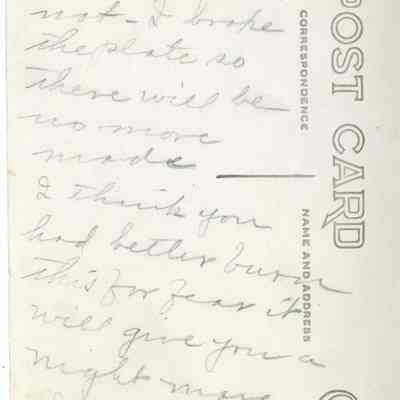 not - I broke
the plate so
there will be
no more
made
I think you
had better burn
this for fear it
will give you a
night mare
POST CARD
CORRESPONDENCE
NAME AND ADDRESS